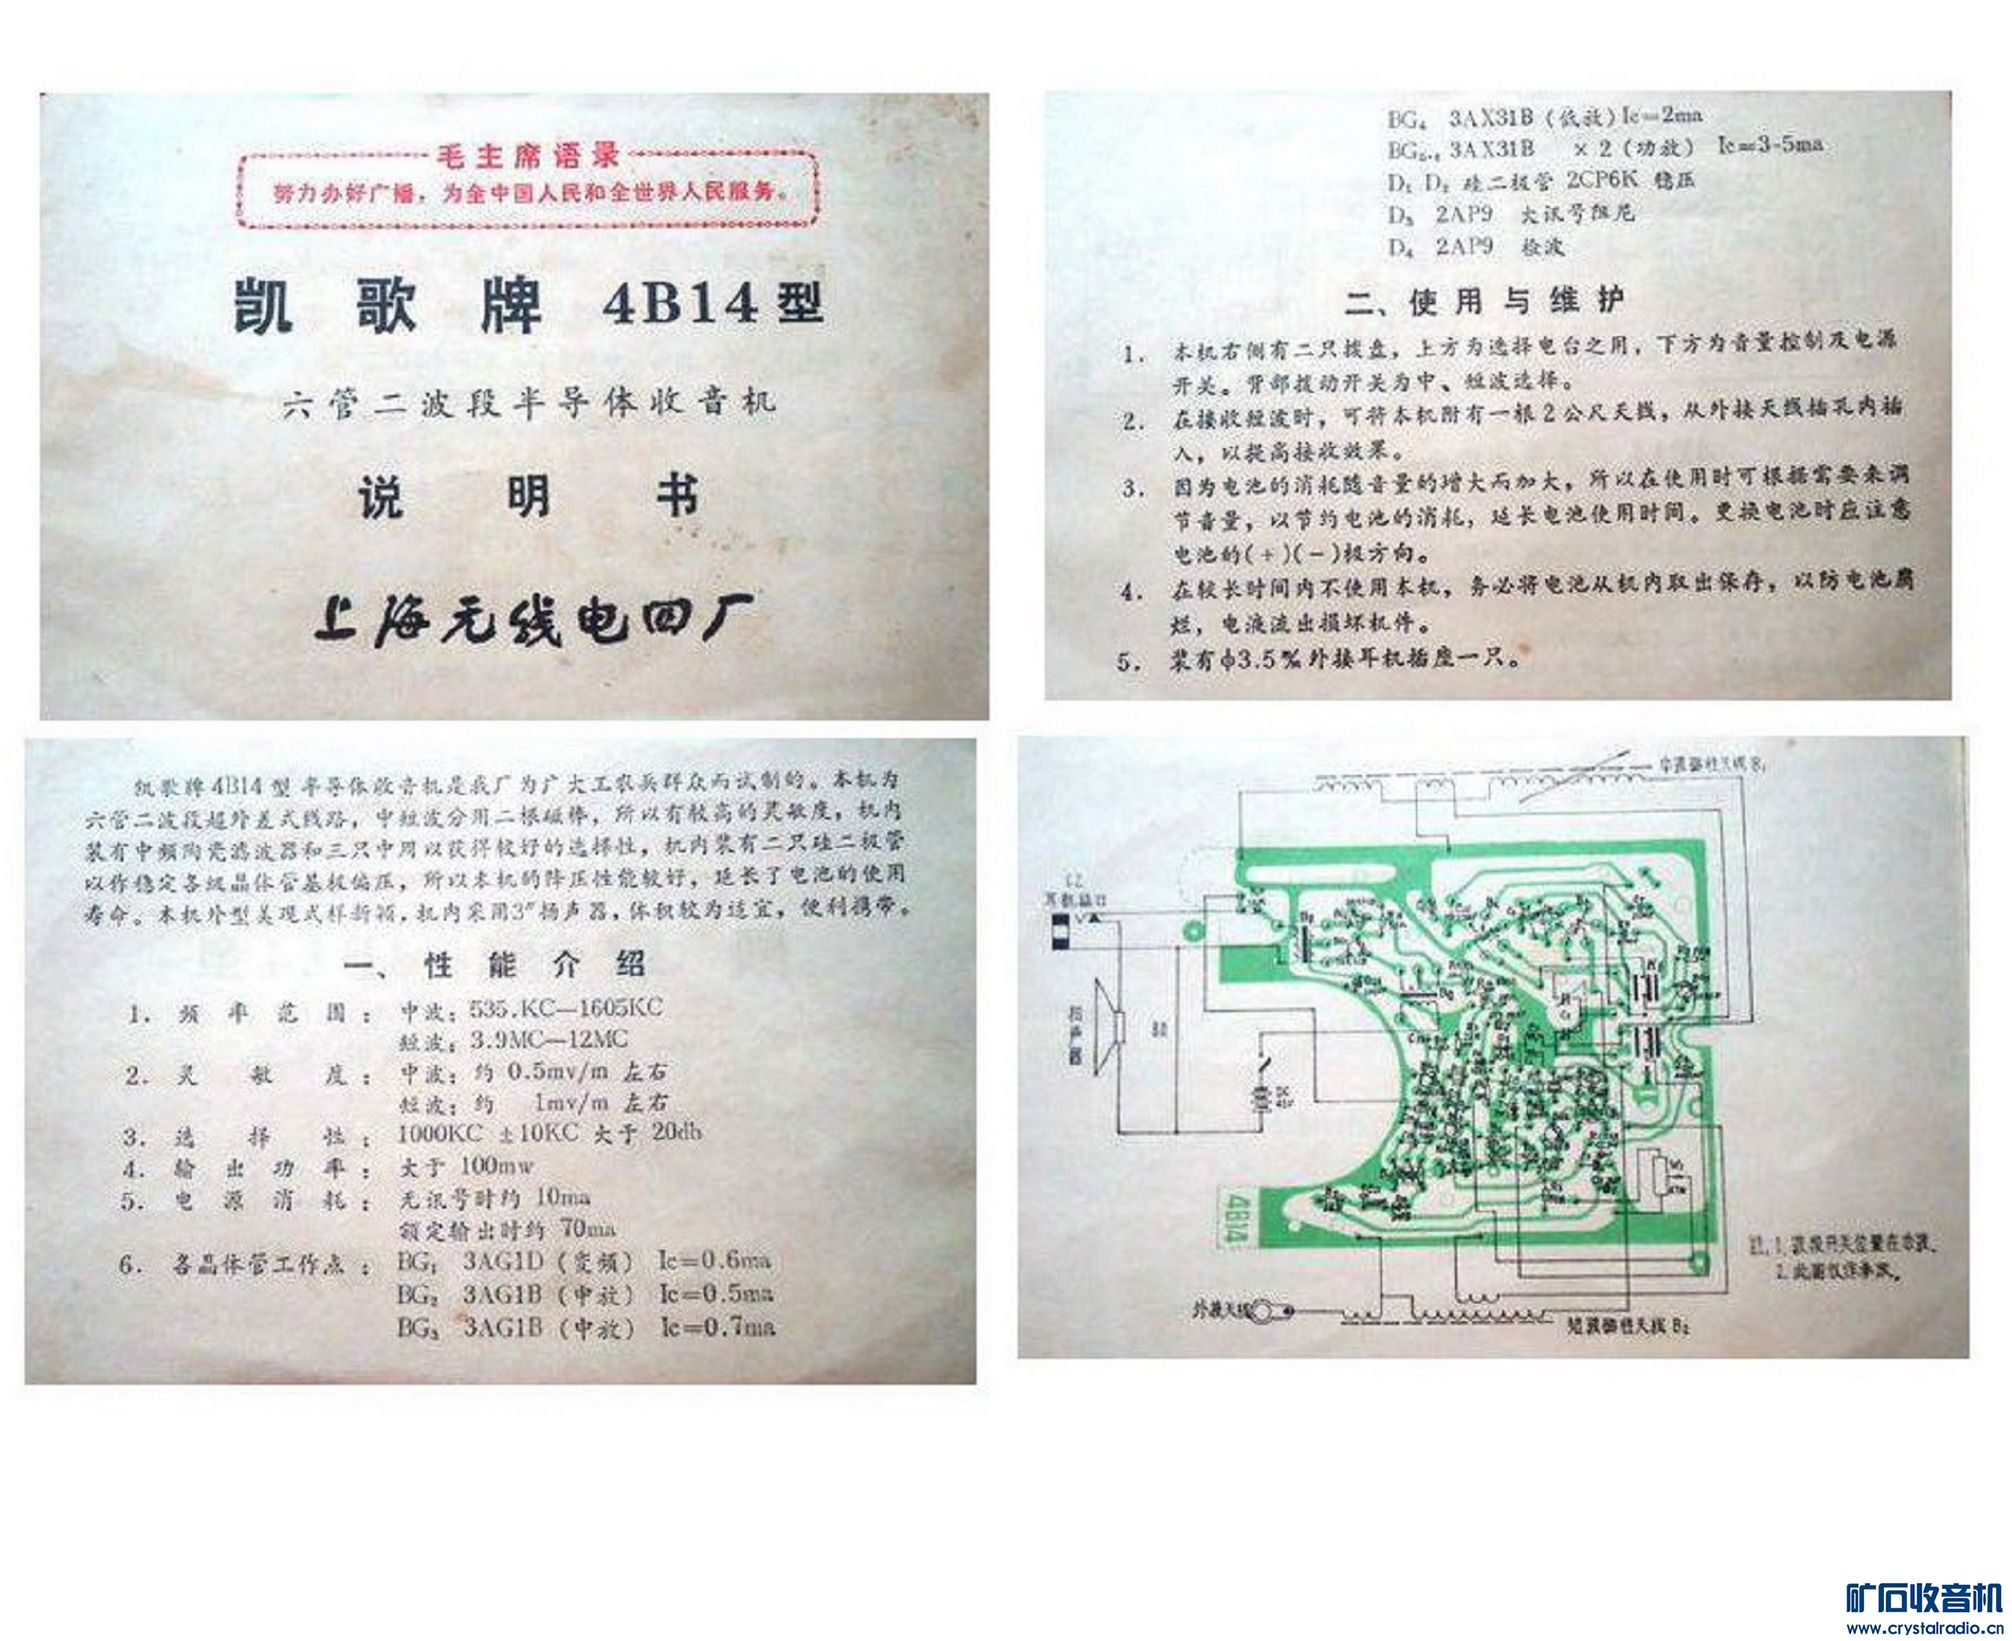 毛主席语录
努力办好广播，为全中国人民和全世界人民服务。
凯歌牌 4B14型
六管二波段半导体收音机
说明书
上海无线电四厂
凯歌牌4B14型半导体收音机是我厂为广大工农兵群众而试制的。本机为
六管二波段超外差式线路，中短波分用二根磁棒，所以有较高的灵敏度，机内
装有中频陶瓷滤波器和三只中周以获得较好的选择性，机内装有二只硅二极管
以作稳定各级晶体管基极偏压，所以本机的降压性能较好，延长了电池的使用
寿命。本机外型美观式样新颖，机内采用3″扬声器，体积较为适宜，便利携带。
一、性能介绍
1. 频率范围：中波：535.KC—1605KC
短波：3.9MC—12MC
2. 灵敏度：中波：约 0.5mv/m 左右
短波：约 1mv/m 左右
3. 选择性：1000KC ±10KC 大于 20db
4. 输出功率：大于 100mw
5. 电源消耗：无讯号时约 10ma
额定输出时约 70ma
6. 各晶体管工作点：BG₁ 3AG1D（变频） Ic=0.6ma
BG₂ 3AG1B（中放） Ic=0.5ma
BG₃ 3AG1B（中放） Ic=0.7ma
BG₄ 3AX31B（低放）Ic=2ma
BG₅.₆ 3AX31B ×2（功放） Ic=3-5ma
D₁ D₂ 硅二极管 2CP6K 稳压
D₃ 2AP9 大讯号阻尼
D₄ 2AP9 检波
二、使用与维护
1. 本机右侧有二只拨盘，上方为选择电台之用，下方为音量控制及电源
开关。背部拨动开关为中、短波选择。
2. 在接收短波时，可将本机附有一根2公尺天线，从外接天线插孔内插
入，以提高接收效果。
3. 因为电池的消耗随音量的增大而加大，所以在使用时可根据需要来调
节音量，以节约电池的消耗，延长电池使用时间。更换电池时应注意
电池的(+)(-)极方向。
4. 在较长时间内不使用本机，务必将电池从机内取出保存，以防电池腐
烂，电液流出损坏机件。
5. 装有φ3.5‰外接耳机插座一只。
中波磁性天线B₁
耳机插口
扬声器
4B14
注，1.波段开关位置在中波。
2.此图仅作参改。
外接天线
短波磁性天线B₂
矿石收音机
www.crystalradio.cn